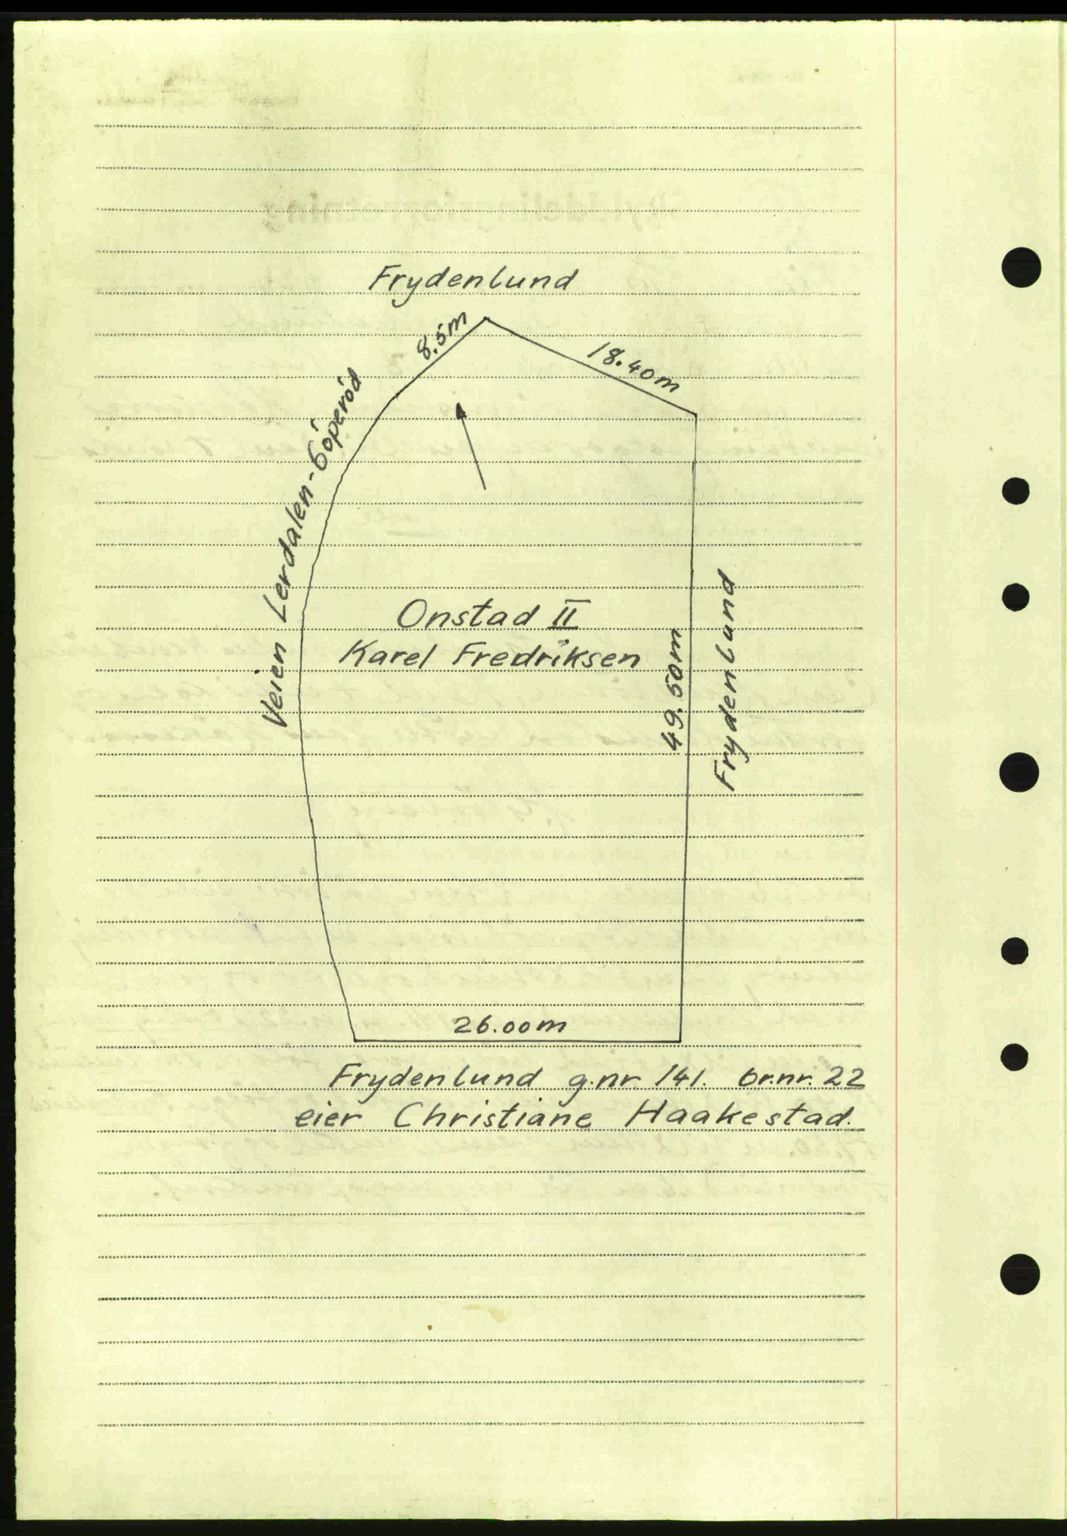 Frydenlund
8.5m
18.40m
Veien Lerdalen-Góperód
Onstad II
Karel Fredriksen
49.50m
Frydenlund
26.00m
Frydenlund g.nr. 141. br.nr. 22
eier Christiane Haakestad.